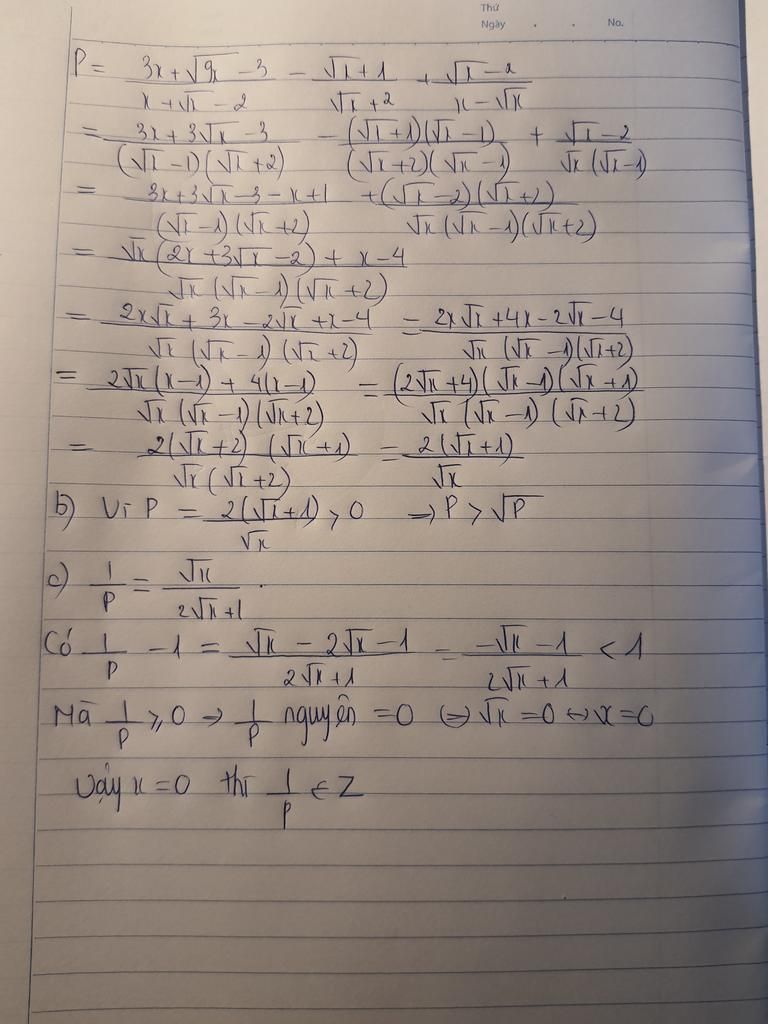 Thứ
Ngày . . No.
P = \frac{3x+\sqrt{9x}-3}{x+\sqrt{x}-2} - \frac{\sqrt{x}+1}{\sqrt{x}+2} + \frac{\sqrt{x}-2}{x-\sqrt{x}}
= \frac{3x+3\sqrt{x}-3}{(\sqrt{x}-1)(\sqrt{x}+2)} - \frac{(\sqrt{x}+1)(\sqrt{x}-1)}{(\sqrt{x}+2)(\sqrt{x}-1)} + \frac{\sqrt{x}-2}{\sqrt{x}(\sqrt{x}-1)}
= \frac{3x+3\sqrt{x}-3-x+1}{(\sqrt{x}-1)(\sqrt{x}+2)} + \frac{(\sqrt{x}-2)(\sqrt{x}+2)}{\sqrt{x}(\sqrt{x}-1)(\sqrt{x}+2)}
= \frac{\sqrt{x}(2x+3\sqrt{x}-2)+x-4}{\sqrt{x}(\sqrt{x}-1)(\sqrt{x}+2)}
= \frac{2x\sqrt{x}+3x-2\sqrt{x}+x-4}{\sqrt{x}(\sqrt{x}-1)(\sqrt{x}+2)} = \frac{2x\sqrt{x}+4x-2\sqrt{x}-4}{\sqrt{x}(\sqrt{x}-1)(\sqrt{x}+2)}
= \frac{2\sqrt{x}(x-1)+4(x-1)}{\sqrt{x}(\sqrt{x}-1)(\sqrt{x}+2)} = \frac{(2\sqrt{x}+4)(\sqrt{x}-1)(\sqrt{x}+1)}{\sqrt{x}(\sqrt{x}-1)(\sqrt{x}+2)}
= \frac{2(\sqrt{x}+2)(\sqrt{x}+1)}{\sqrt{x}(\sqrt{x}+2)} = \frac{2(\sqrt{x}+1)}{\sqrt{x}}
b) Vì P = \frac{2(\sqrt{x}+1)}{\sqrt{x}} > 0 ⇒ P > \sqrt{P}
c) \frac{1}{P} = \frac{\sqrt{x}}{2\sqrt{x}+1} .
Có \frac{1}{P} - 1 = \frac{\sqrt{x}-2\sqrt{x}-1}{2\sqrt{x}+1} = \frac{-\sqrt{x}-1}{2\sqrt{x}+1} < 1
Mà \frac{1}{P} ≥ 0 ⇒ \frac{1}{P} nguyên = 0 ⇔ \sqrt{x} = 0 ⇔ x = 0
Vậy x = 0 thì \frac{1}{P} ∈ Z